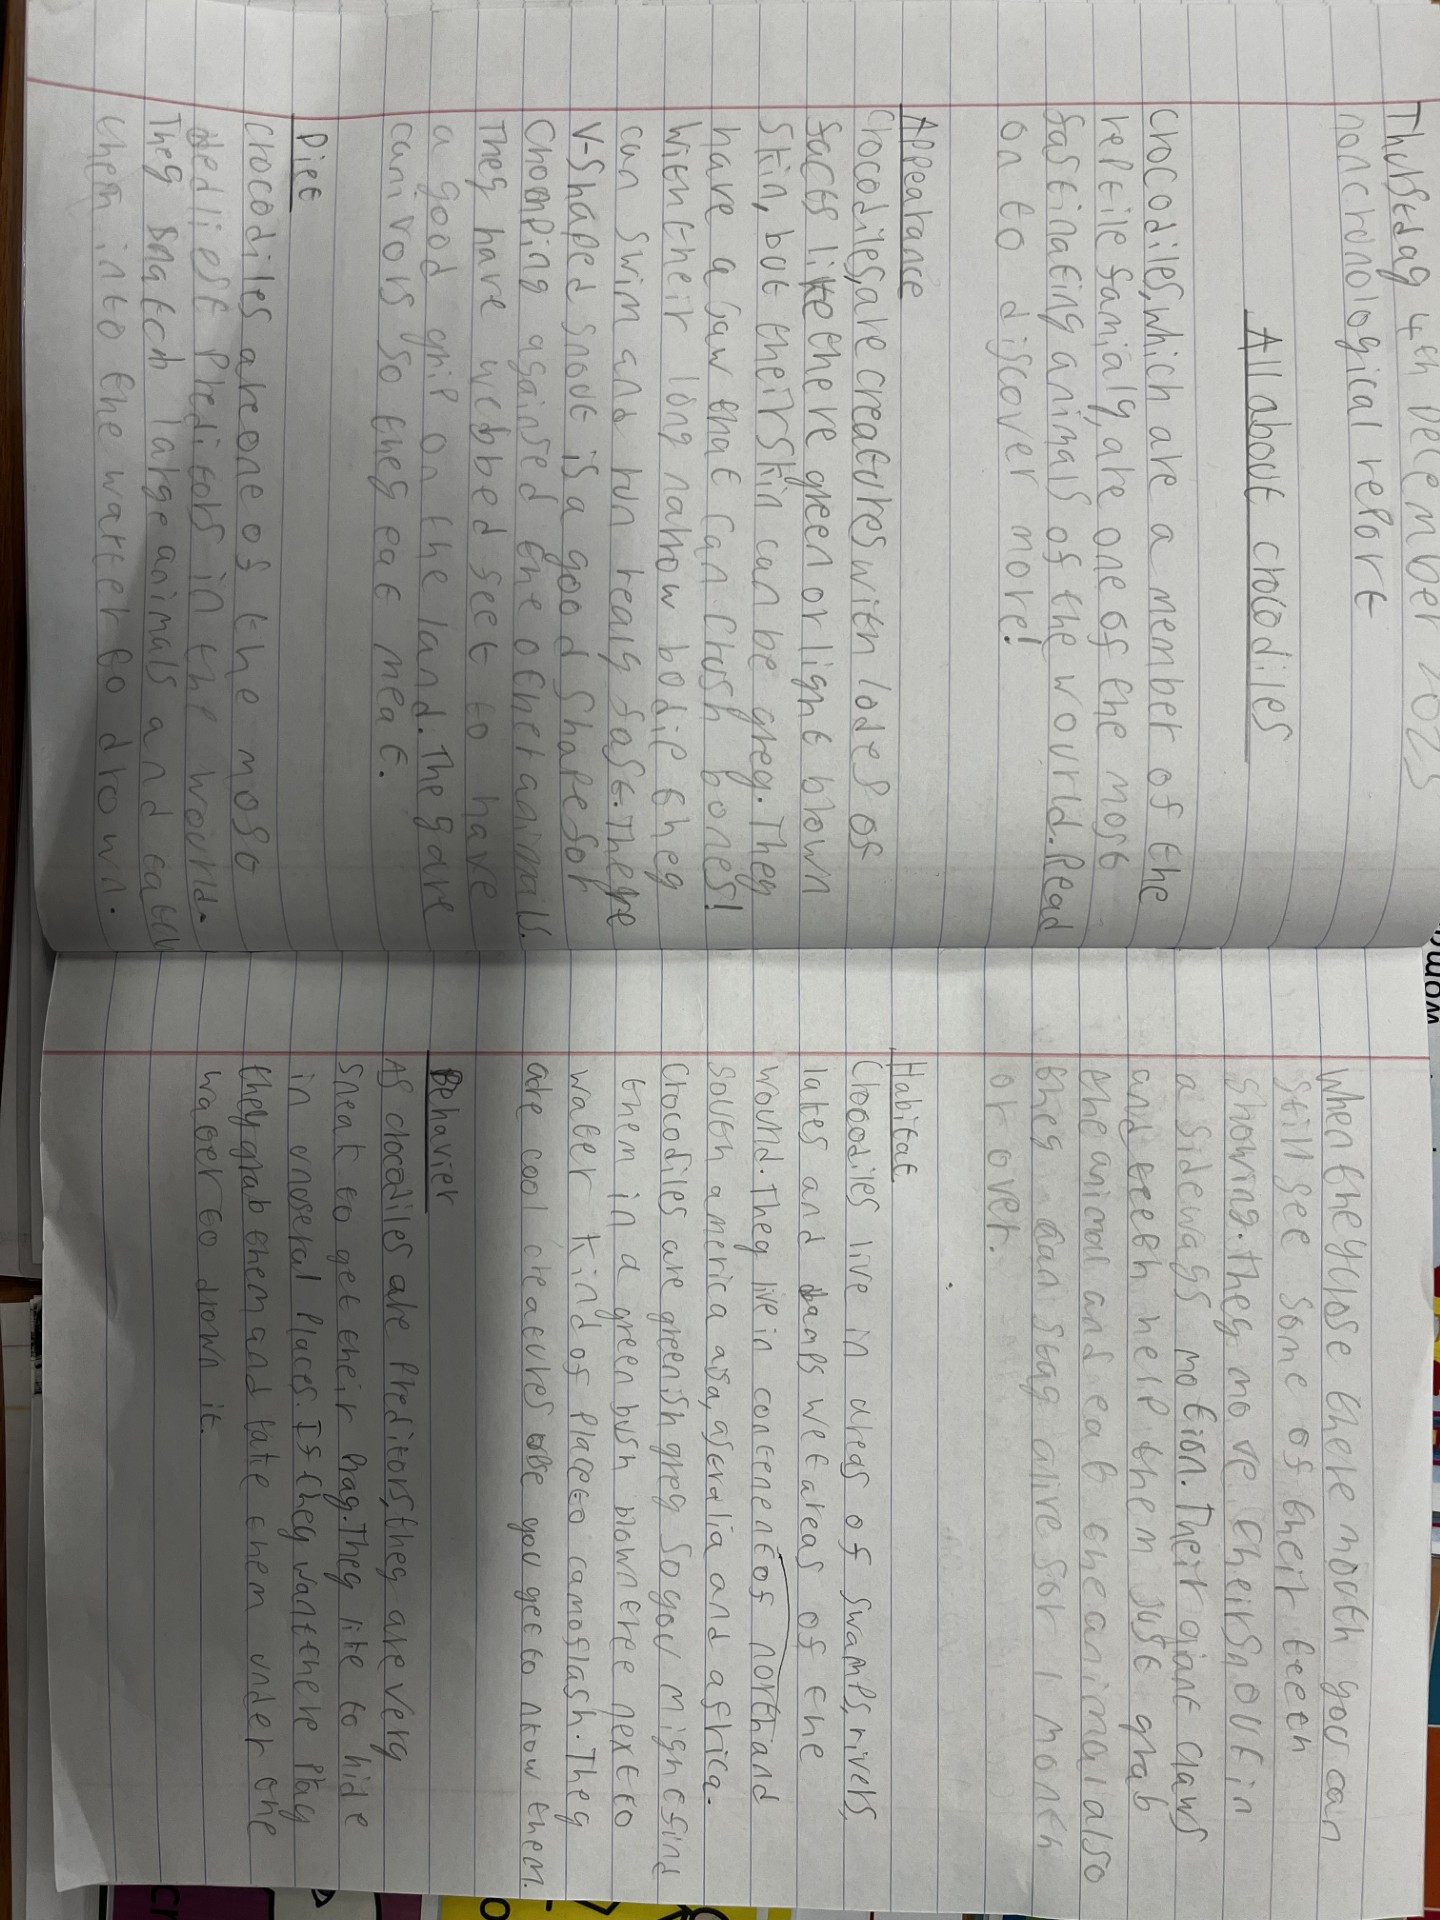 Thursday 4th December 2025
non chronological report
All about crocodiles
Crocodiles, which are a member of the
reptile famialy, are one of the most
fastinating animals of the wourld. Read
on to discover more!
Appearance
Crocodiles, are creatures with lodes of
facts like there green or light brown
skin, but their skin can be grey. They
have a jaw that can crush bones!
With their long narrow bodie they
can swim and run realy fast. There
V-shaped snout is a good shape for
Chomping against the other animals.
They have webbed feet to have
a good grip on the land. They are
carnivors so they eat meat.
Diet
Crocodiles are one of the most
dedliest preditors in the wourld.
They snatch large animals and catch
them into the warter to drown.
When they close there mouth you can
still see some of their teeth
showing. they move their snout in
a sideways motion. Their giant claws
and teeth help them just grab
the animal and eat the animal also
they can stay alive for 1 month
or over.
Habitat
Crocodiles live in areas of swamps, rivers,
lakes and damps wet areas of the
wound. They live in contenents of north and
south america aisa, astralia and africa.
Crocodiles are greenish grey so you might find
them in a green bush brown tree next to
water kind of place to camoflash. They
are cool creatures once you get to know them.
Behavier
As crocodiles are preditors, they are very
sneak to get their pray. They like to hide
in unuseral places. If they want there pray
they grab them and take them under the
water to drown it.